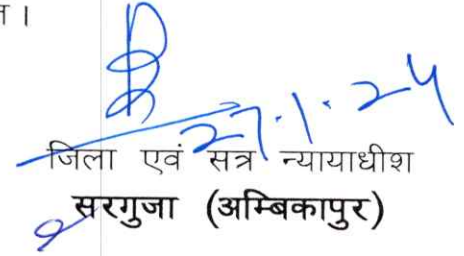 त।
27.1.24
जिला एवं सत्र न्यायाधीश
सरगुजा (अम्बिकापुर)